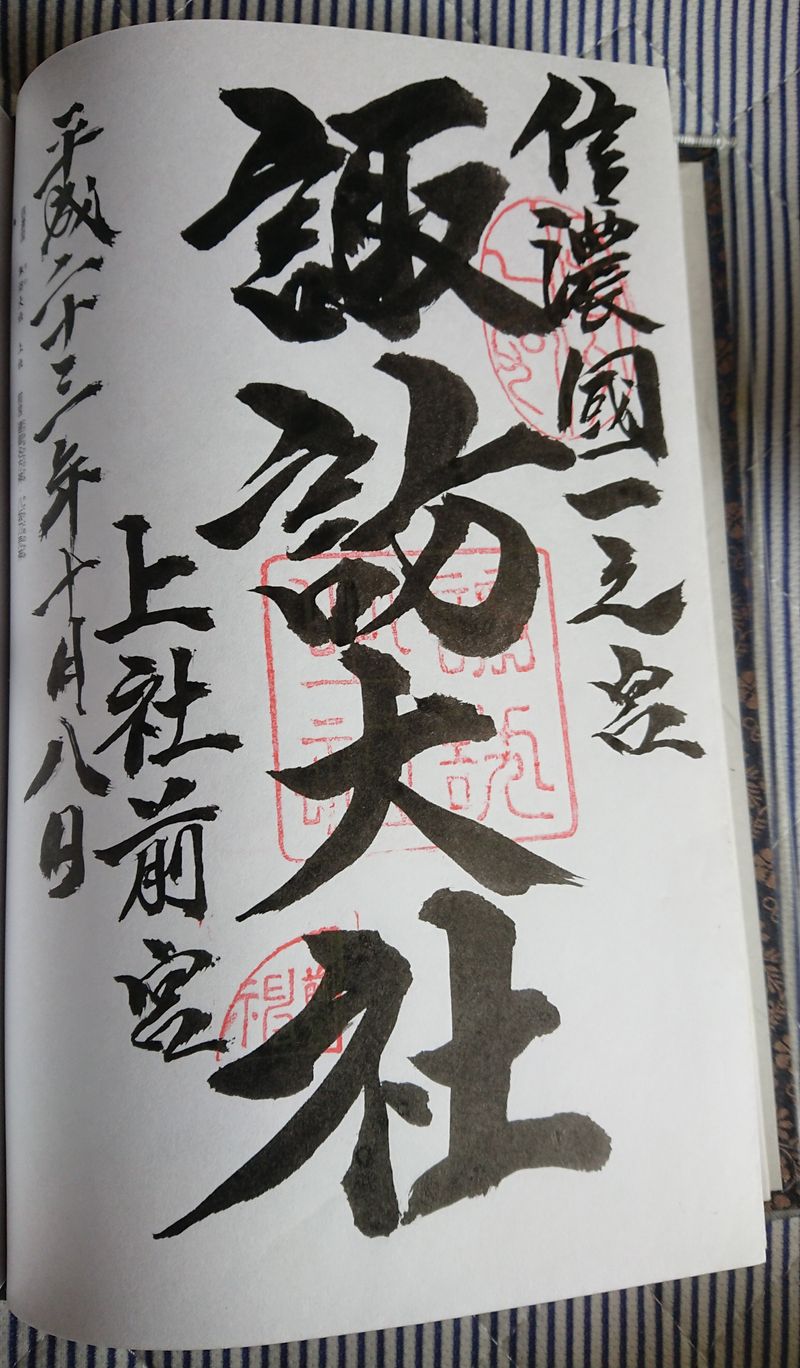 信濃國一之宮
諏訪大社
上社前宮
平成二十三年十月八日